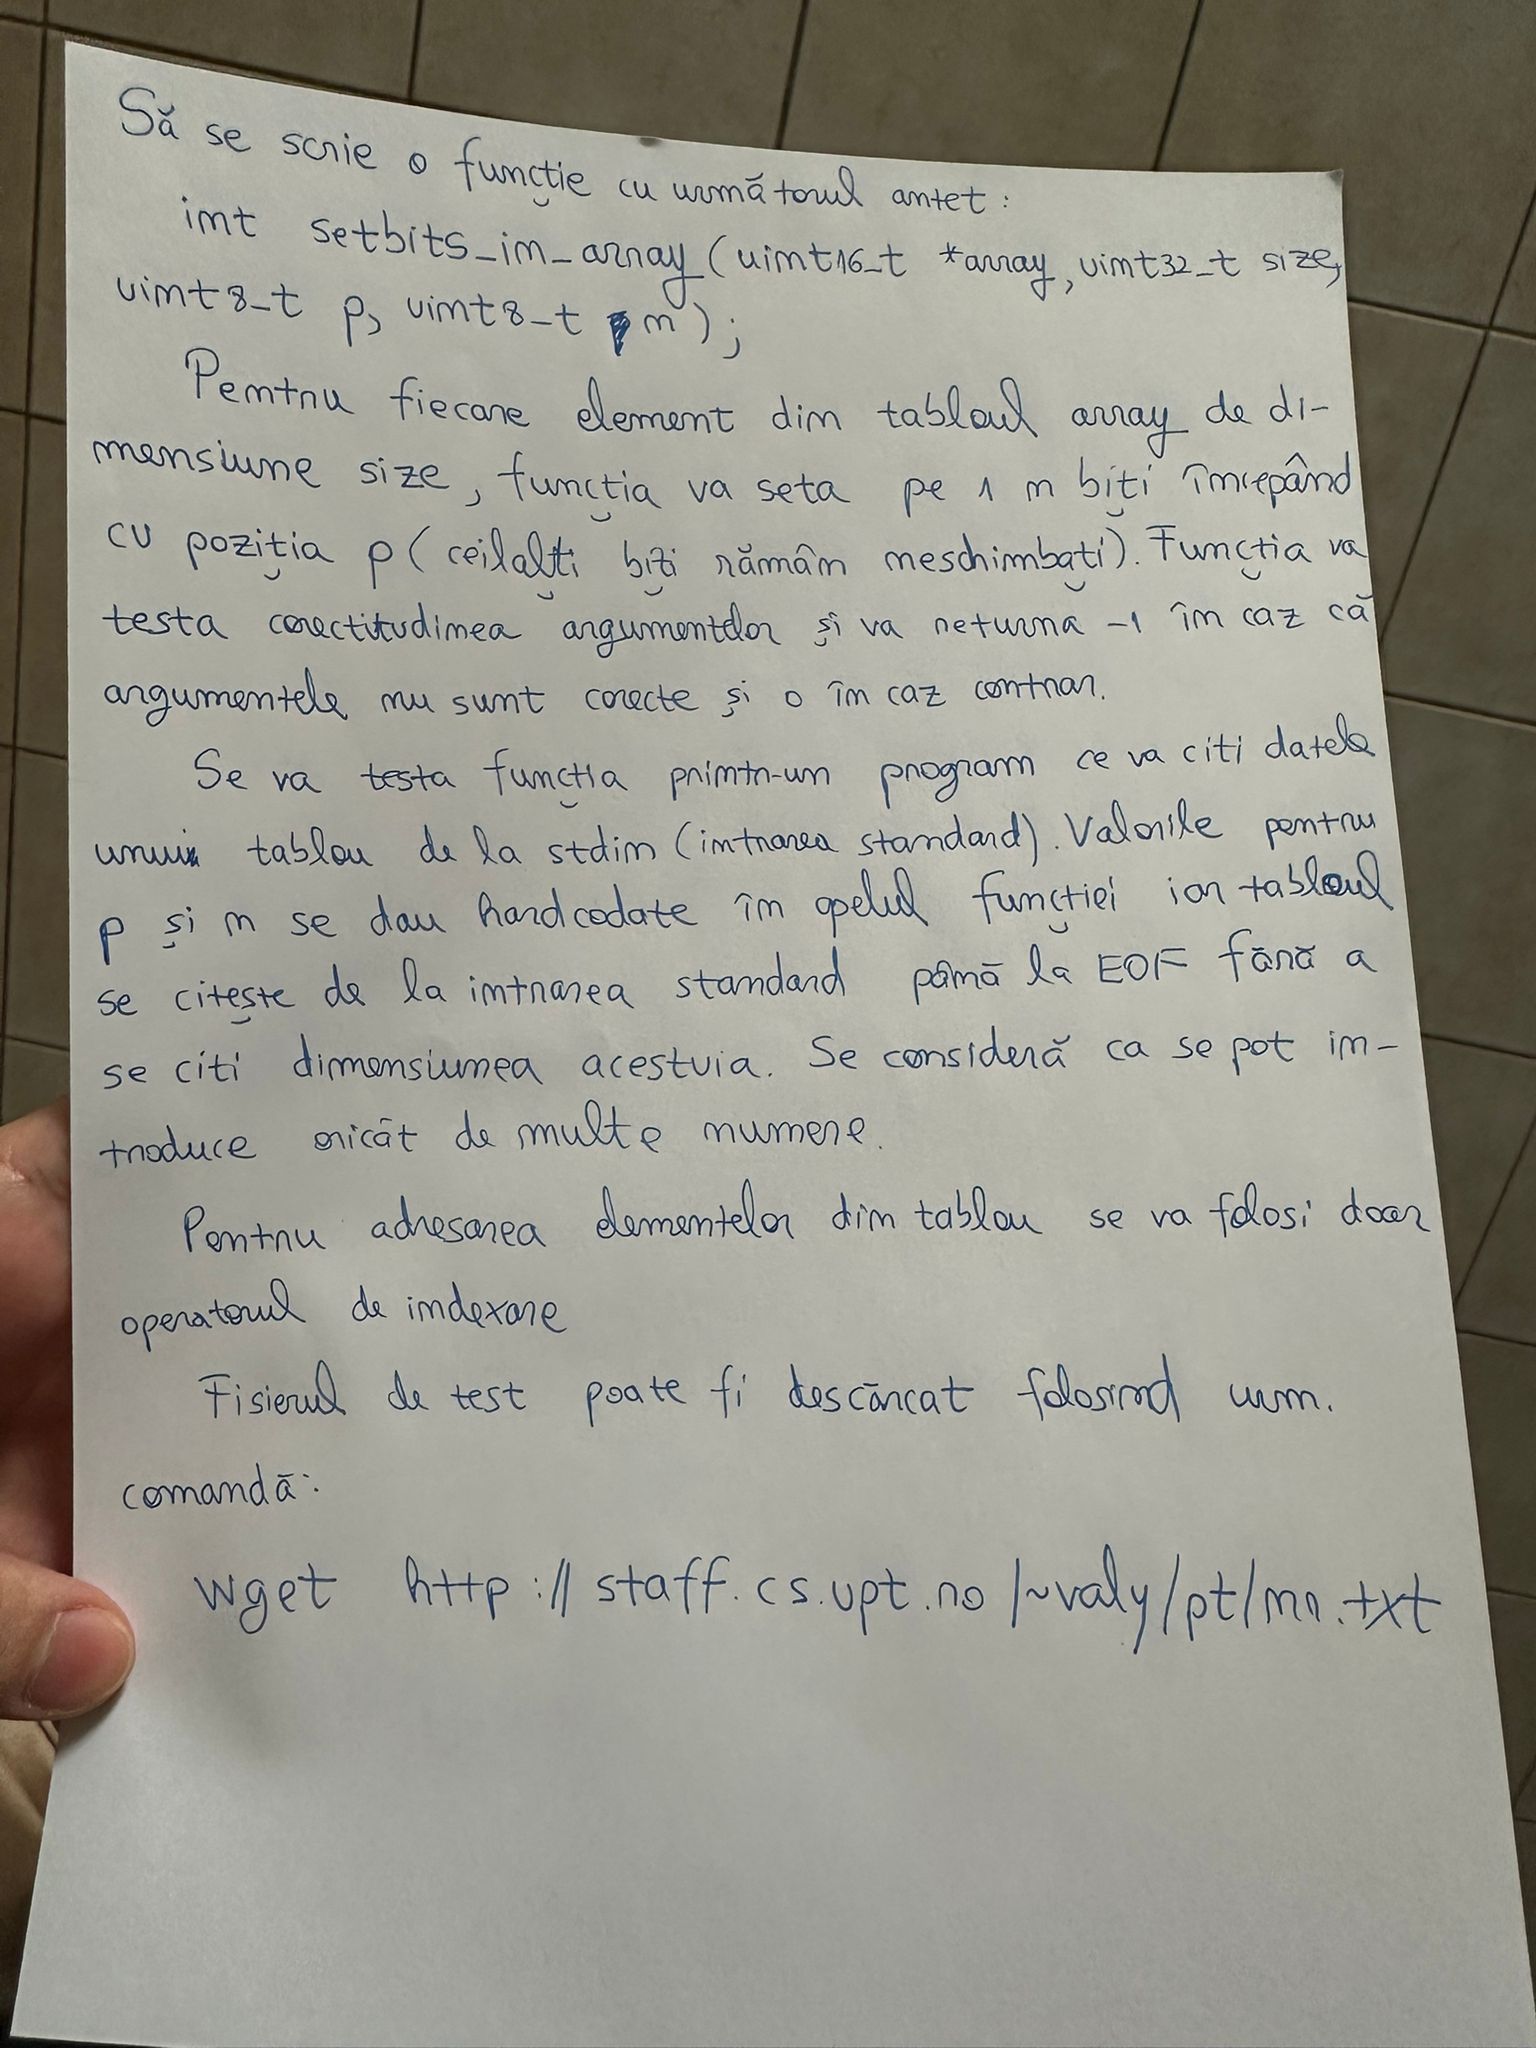 Să se scrie o funcție cu următorul antet:
int setbits_in_array(uint16_t *array, uint32_t size,
uint8_t p, uint8_t n);
Pentru fiecare element din tabloul array de di-
mensiune size, funcția va seta pe 1 n biți începând
cu poziția p (ceilalți biți rămân neschimbați). Funcția va
testa corectitudinea argumentelor și va returna -1 în caz că
argumentele nu sunt corecte și 0 în caz contrar.
Se va testa funcția printr-un program ce va citi datele
unui tablou de la stdin (intrarea standard). Valorile pentru
p și n se dau hardcodate în apelul funcției iar tabloul
se citește de la intrarea standard până la EOF fără a
se citi dimensiunea acestuia. Se consideră ca se pot in-
troduce oricât de multe numere.
Pentru adresarea elementelor din tablou se va folosi doar
operatorul de indexare
Fisierul de test poate fi descărcat folosind urm.
comandă:
wget http://staff.cs.upt.ro/~valy/pt/nr.txt